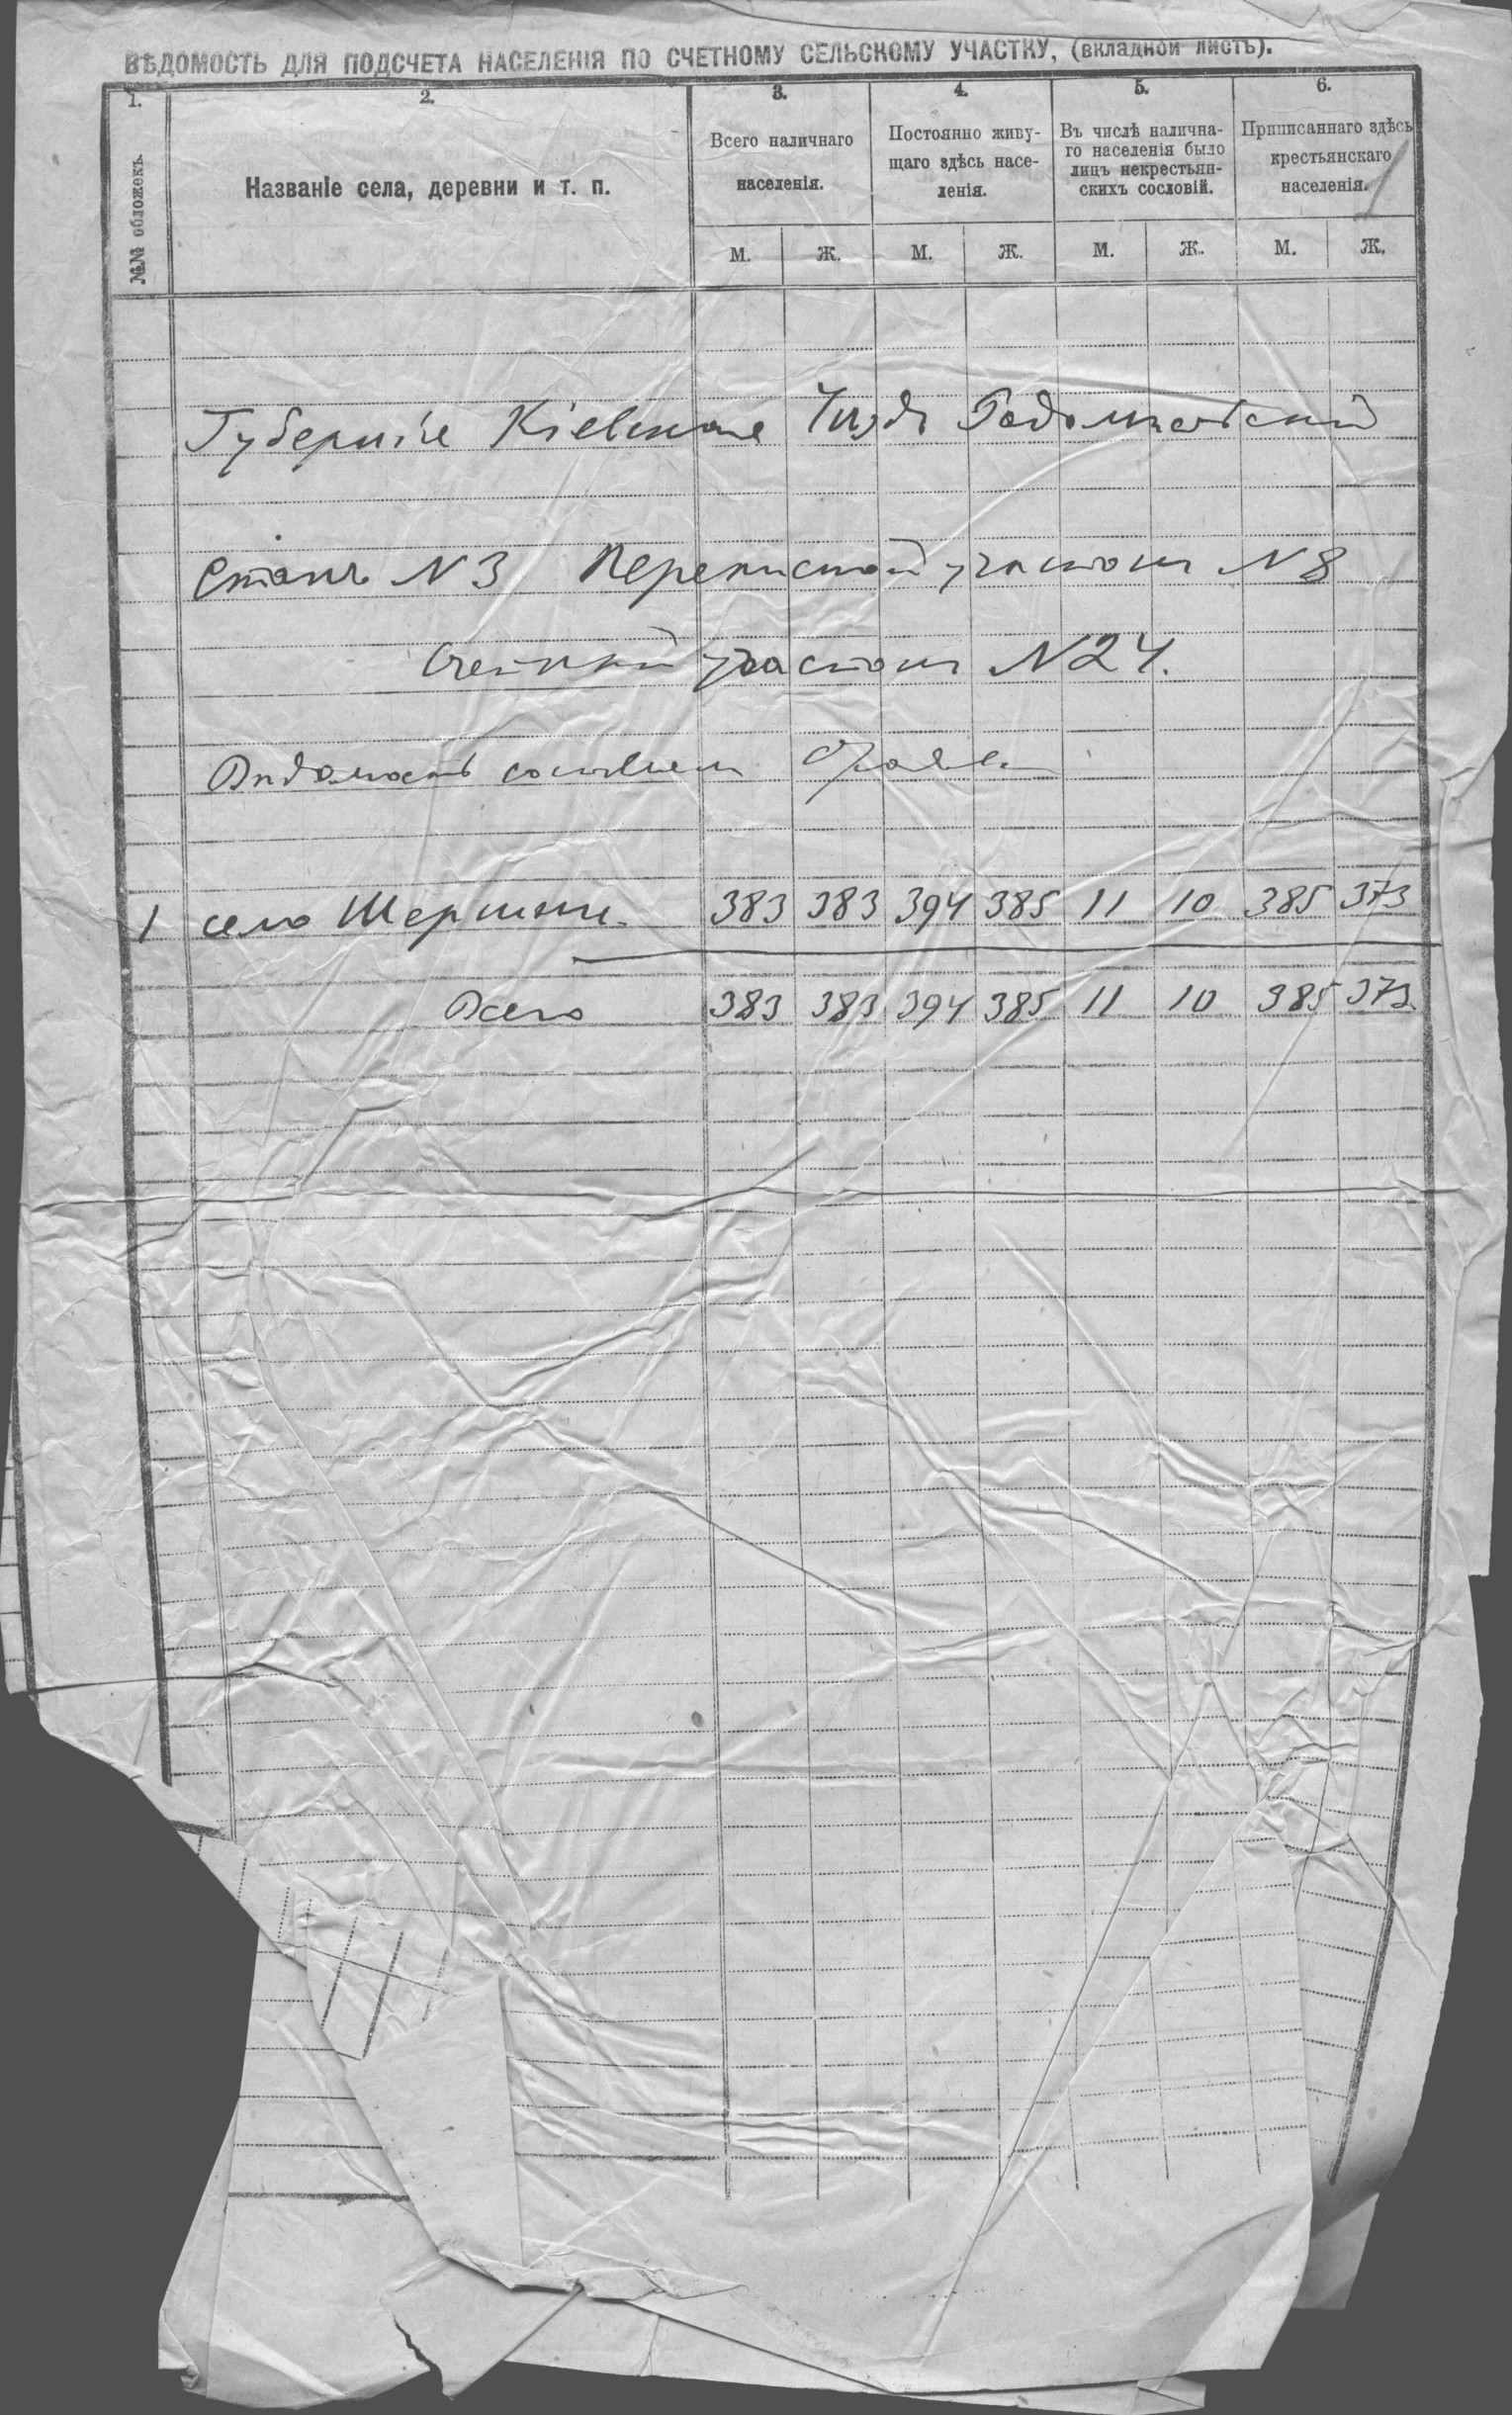 ВѢДОМОСТЬ ДЛЯ ПОДСЧЕТА НАСЕЛЕНІЯ ПО СЧЕТНОМУ СЕЛЬСКОМУ УЧАСТКУ, (вкладной листъ).
1. 2. 3. 4. 5. 6.
№№ обложекъ.
Названіе села, деревни и т. п.
Всего наличнаго
населенія.
Постоянно живу-
щаго здѣсь насе-
ленія.
Въ числѣ налична-
го населенія было
лицъ некрестьян-
скихъ сословій.
Приписаннаго здѣсь
крестьянскаго
населенія.
М. Ж. М. Ж. М. Ж. М. Ж.
Губернія Кіевская Уѣздъ Радомысльскій
Станъ N 3 Переписной участокъ N 8
Счетный участокъ N 24.
Вѣдомость составлена
1 село 383 383 394 385 11 10 385 373
Всего 383 383 394 385 11 10 385 373.